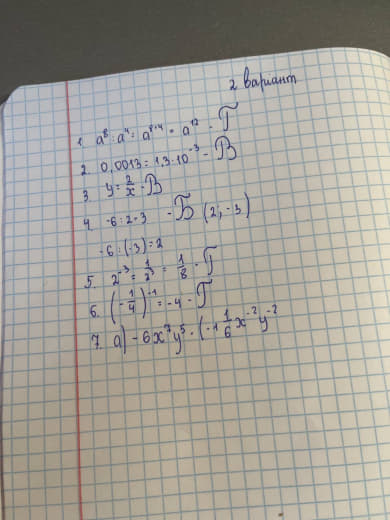 2 вариант
1. a⁸ : a⁴ = a⁸⁺⁴ = a¹² - Г
2. 0,0013 = 1,3·10⁻³ - В
3. y = 2/x - В
4. -6 : 2 = 3 - Б (2, -3)
-6 : (-3) = 2
5. 2⁻³ = 1/2³ = 1/8 - Г
6. (-1/4)⁻¹ = -4 - Г
7. а) -6x⁷y⁵ · (-1 1/6 x⁻²y⁻²